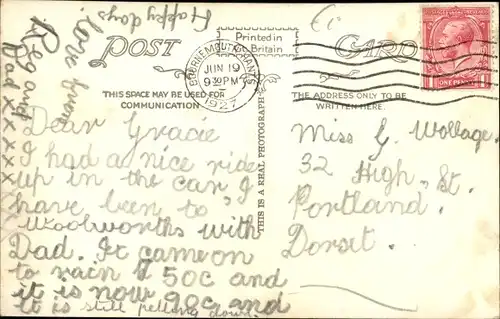 POST
Printed in
Gt Britain
CARD
BOURNEMOUTH
JUN 19
930PM
1927
ONE PENNY
THIS SPACE MAY BE USED FOR
COMMUNICATION
THE ADDRESS ONLY TO BE
WRITTEN HERE.
THIS IS A REAL PHOTOGRAPH
Dear Gracie
I had a nice ride
up in the car I
have been to
Woolworths with
Dad. It came on
to rain 50c and
it is now 90c and
it is still pelting down.
love from
Reg and
Dad xxxxx
Happy days
Miss G. Wollage
32 High St.
Portland.
Dorset.